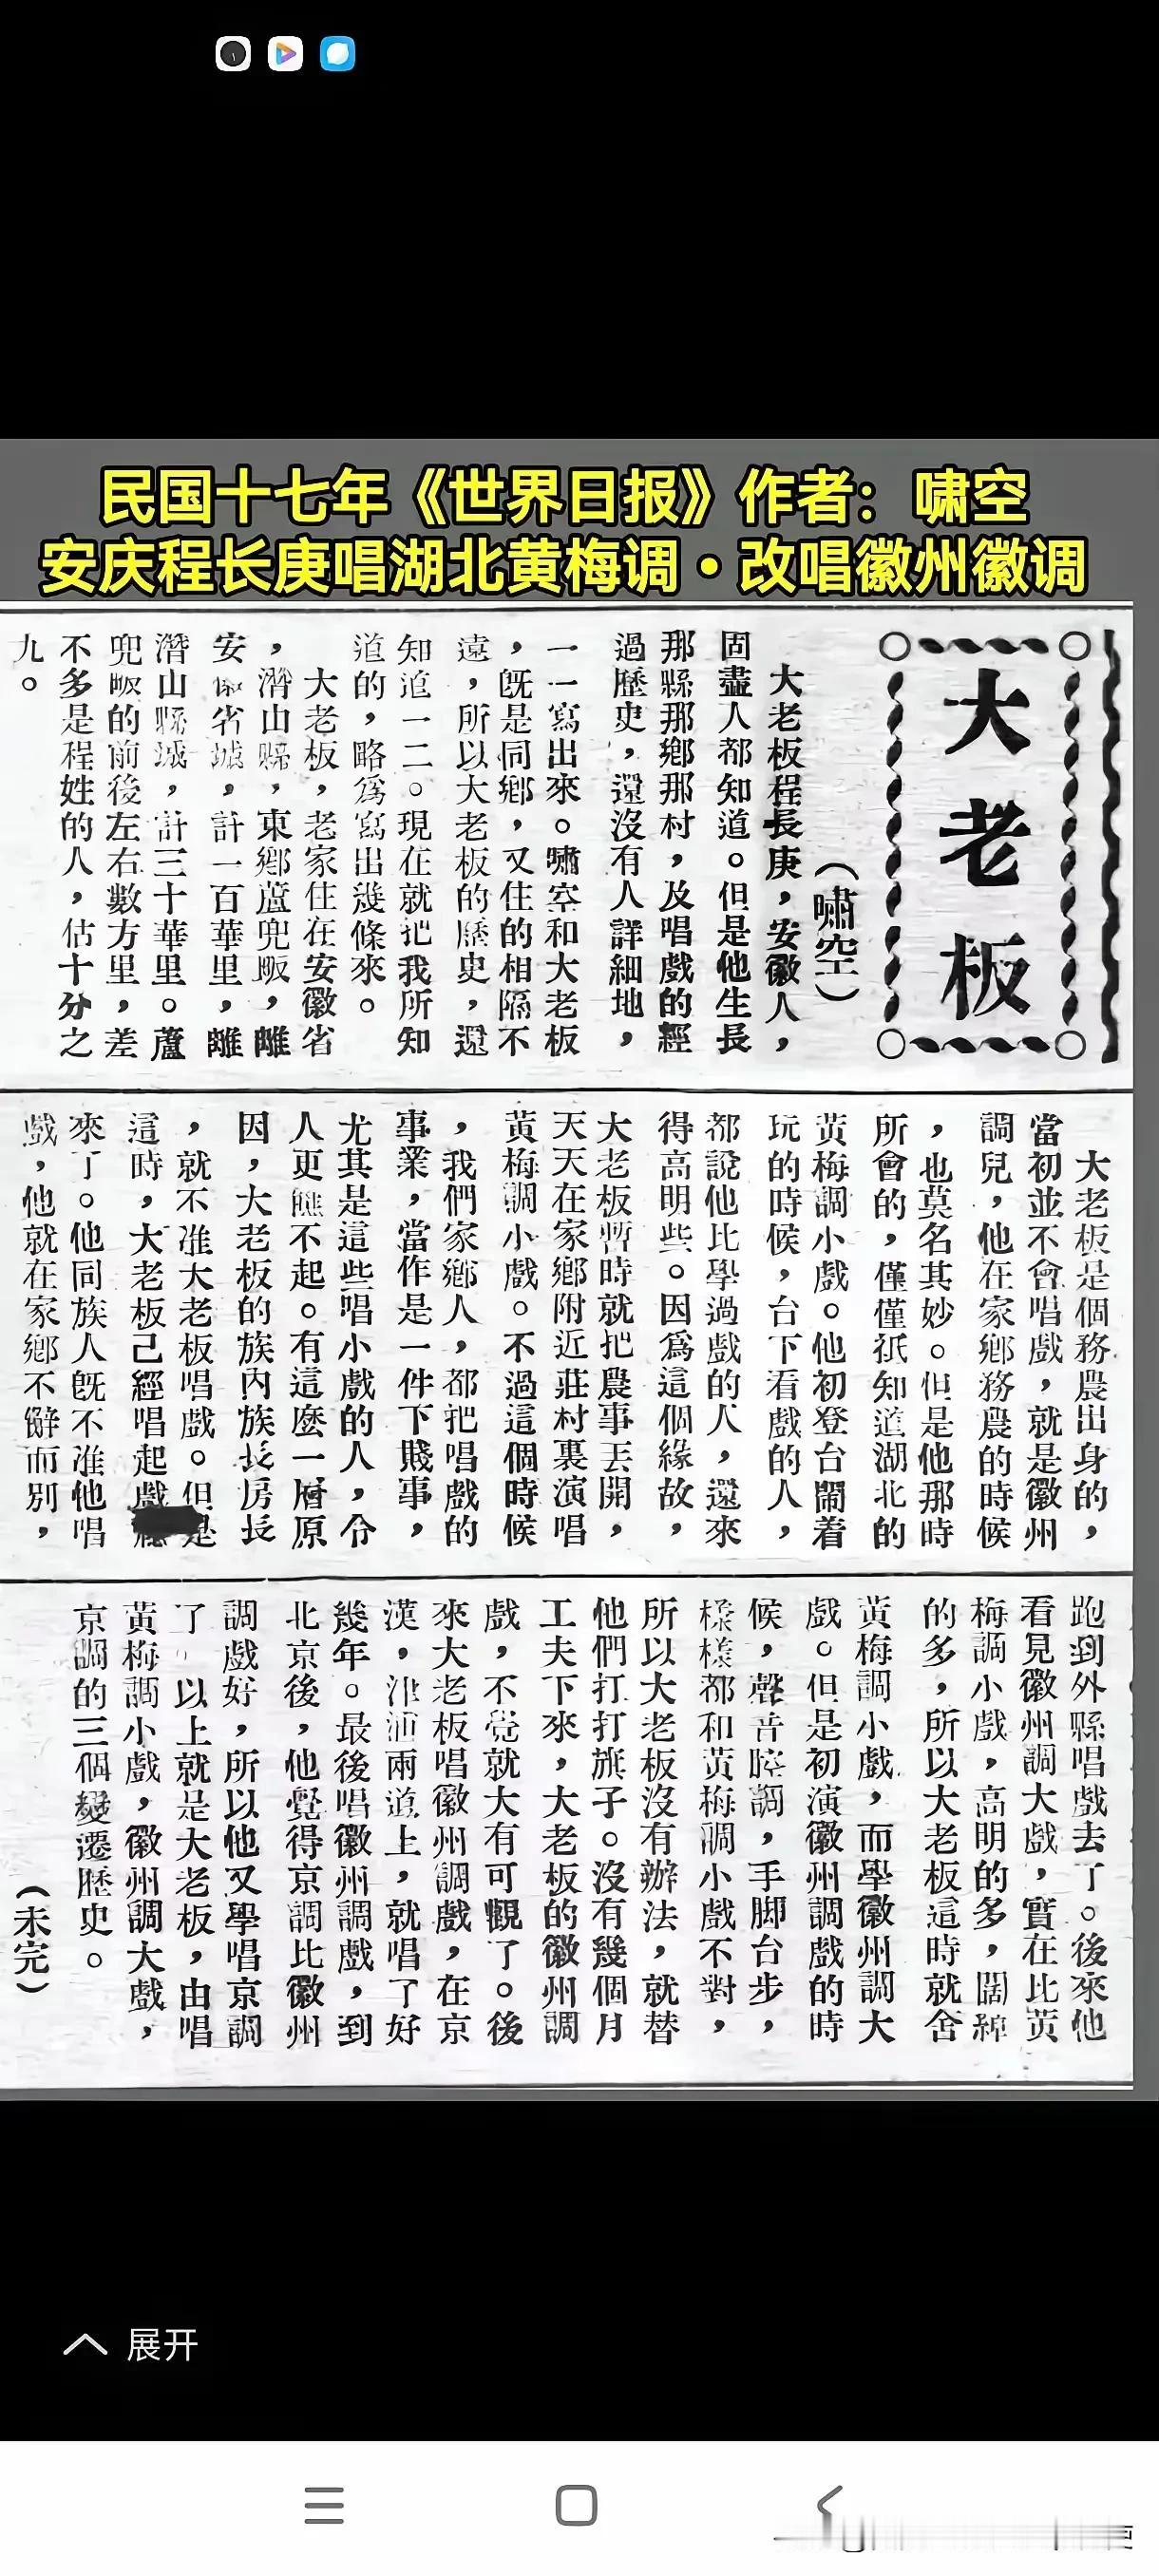 民国十七年《世界日报》作者：啸空
安庆程长庚唱湖北黄梅调·改唱徽州徽调
大老板
（嘯空）
大老板程長庚，安徽人，
固盡人都知道。但是他生長
那縣那鄉那村，及唱戲的經
過歷史，還沒有人詳細地，
一一寫出來。嘯空和大老板
，既是同鄉，又住的相隔不
遠，所以大老板的歷史，還
知道一二。現在就把我所知
道的，略爲寫出幾條來。
大老板，老家住在安徽省
，濳山縣，東鄉蘆兜畈，離
安徽省城，計一百華里，離
濳山縣城，計三十華里。蘆
兜畈的前後左右數方里，差
不多是程姓的人，估十分之
九。
大老板是個務農出身的，
當初並不會唱戲，就是徽州
調兒，他在家鄉務農的時候
，也莫名其妙。但是他那時
所會的，僅僅祇知道湖北的
黃梅調小戲。他初登台鬧着
玩的時候，台下看戲的人，
都說他比學過戲的人，還來
得高明些。因爲這個緣故，
大老板暫時就把農事丟開，
天天在家鄉附近莊村裏演唱
黃梅調小戲。不過這個時候
，我們家鄉人，都把唱戲的
事業，當作是一件下賤事，
尤其是這些唱小戲的人，令
人更瞧不起。有這麼一層原
因，大老板的族內族长房長
，就不准大老板唱戲。但是
這時，大老板已經唱起戲
來了。他同族人既不准他唱
戲，他就在家鄉不辭而別，
跑到外縣唱戲去了。後來他
看見徽州調大戲，實在比黃
梅調小戲，高明的多，闊綽
的多，所以大老板這時就舍
黃梅調小戲，而學徽州調大
戲。但是初演徽州調戲的時
候，聲音腔調，手脚台步，
樣樣都和黃梅調小戲不對，
所以大老板沒有辦法，就替
他們打打旗子。沒有幾個月
工夫下來，大老板的徽州調
戲，不覺就大有可觀了。後
來大老板唱徽州調戲，在京
漢，津浦兩道上，就唱了好
幾年。最後唱徽州調戲，到
北京後，他覺得京調比徽州
調戲好，所以他又學唱京調
了，以上就是大老板，由唱
黃梅調小戲，徽州調大戲，
京調的三個變遷歷史。
（未完）
展开